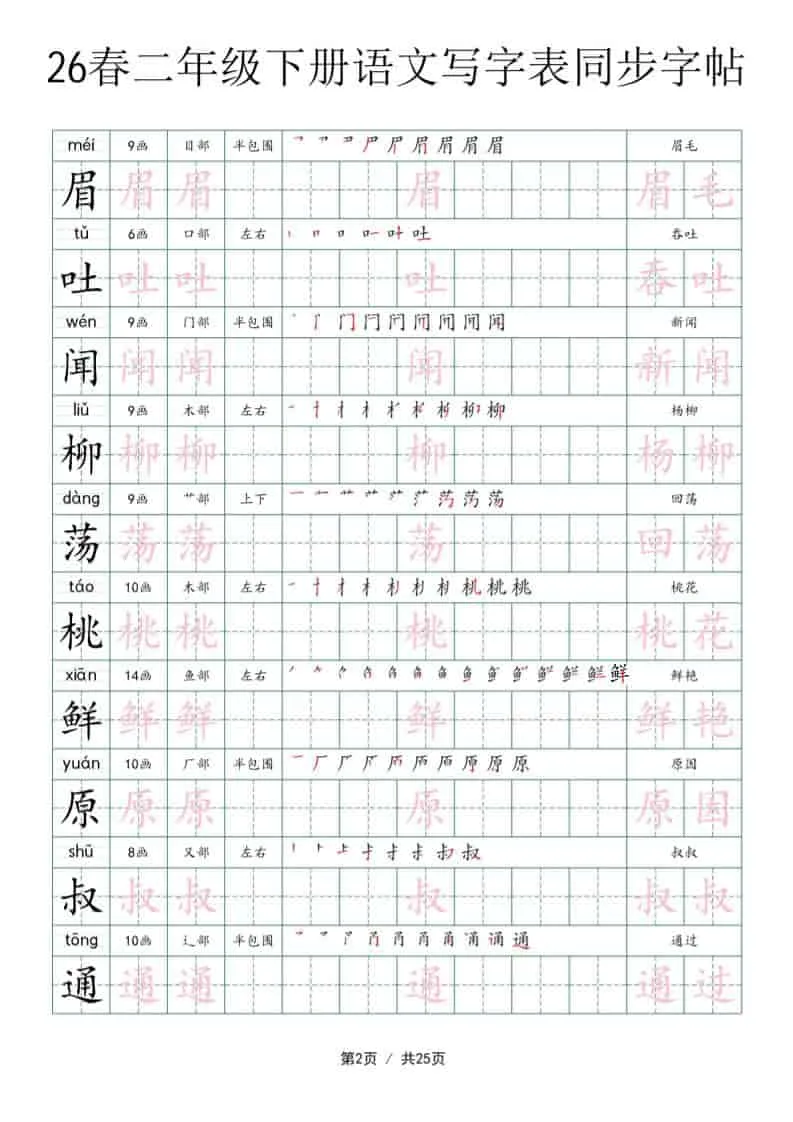 26春二年级下册语文写字表同步字帖
méi 9画 目部 半包围 眉毛
眉 眉 眉 眉 眉 毛
tǔ 6画 口部 左右 吞吐
吐 吐 吐 吐 吞 吐
wén 9画 门部 半包围 新闻
闻 闻 闻 闻 新 闻
liǔ 9画 木部 左右 杨柳
柳 柳 柳 柳 杨 柳
dàng 9画 艹部 上下 回荡
荡 荡 荡 荡 回 荡
táo 10画 木部 左右 桃花
桃 桃 桃 桃 桃 花
xiān 14画 鱼部 左右 鲜艳
鲜 鲜 鲜 鲜 鲜 艳
yuán 10画 厂部 半包围 原因
原 原 原 原 原 因
shū 8画 又部 左右 叔叔
叔 叔 叔 叔 叔 叔
tōng 10画 辶部 半包围 通过
通 通 通 通 通 过
第2页 / 共25页